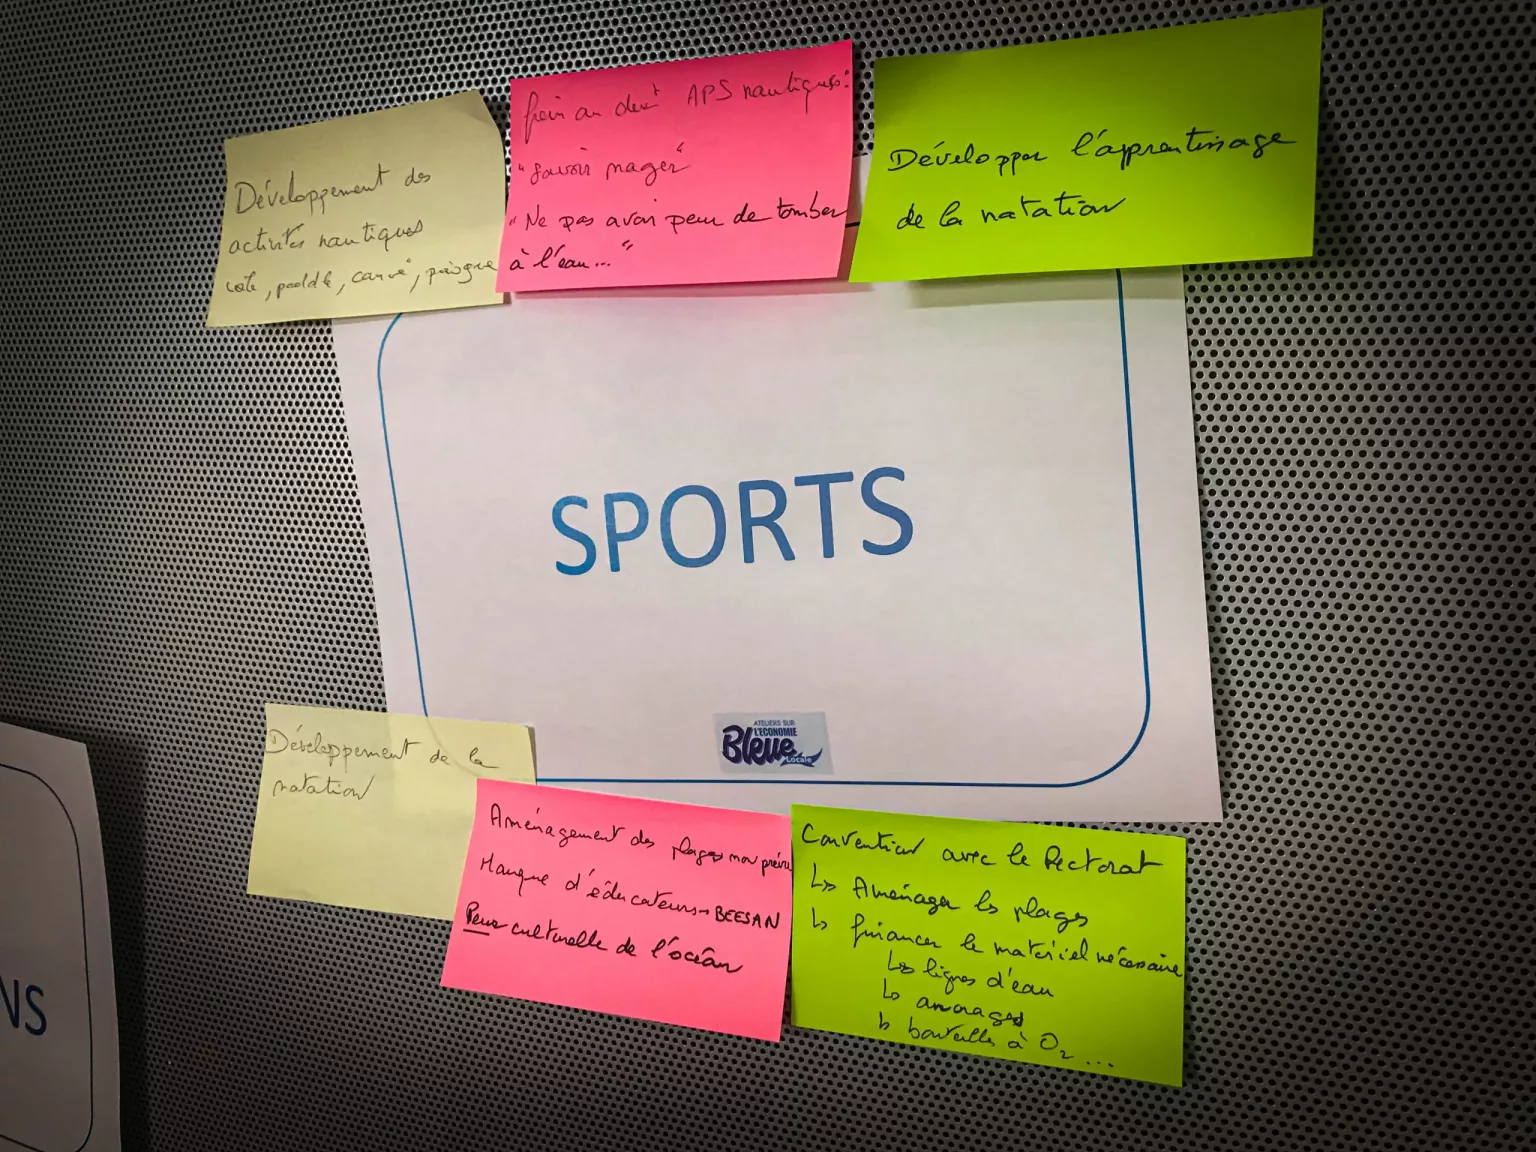 Développement des
activités nautiques
voile, paddle, canoë, pirogue
frein au devt APS nautiques:
"Savoir nager"
"Ne pas avoir peur de tomber
à l'eau..."
Développer l'apprentissage
de la natation
SPORTS
ATELIERS SUR
L'ECONOMIE
Bleue
Locale
Développement de la
natation
Aménagement des plages
Manque d'éducateurs → BEESAN
Peur culturelle de l'océan
Convention avec le Rectorat
↳ Aménager les plages
↳ financer le matériel nécessaire
↳ lignes d'eau
↳ ancrages
↳ bouteilles à O2 ...
NS